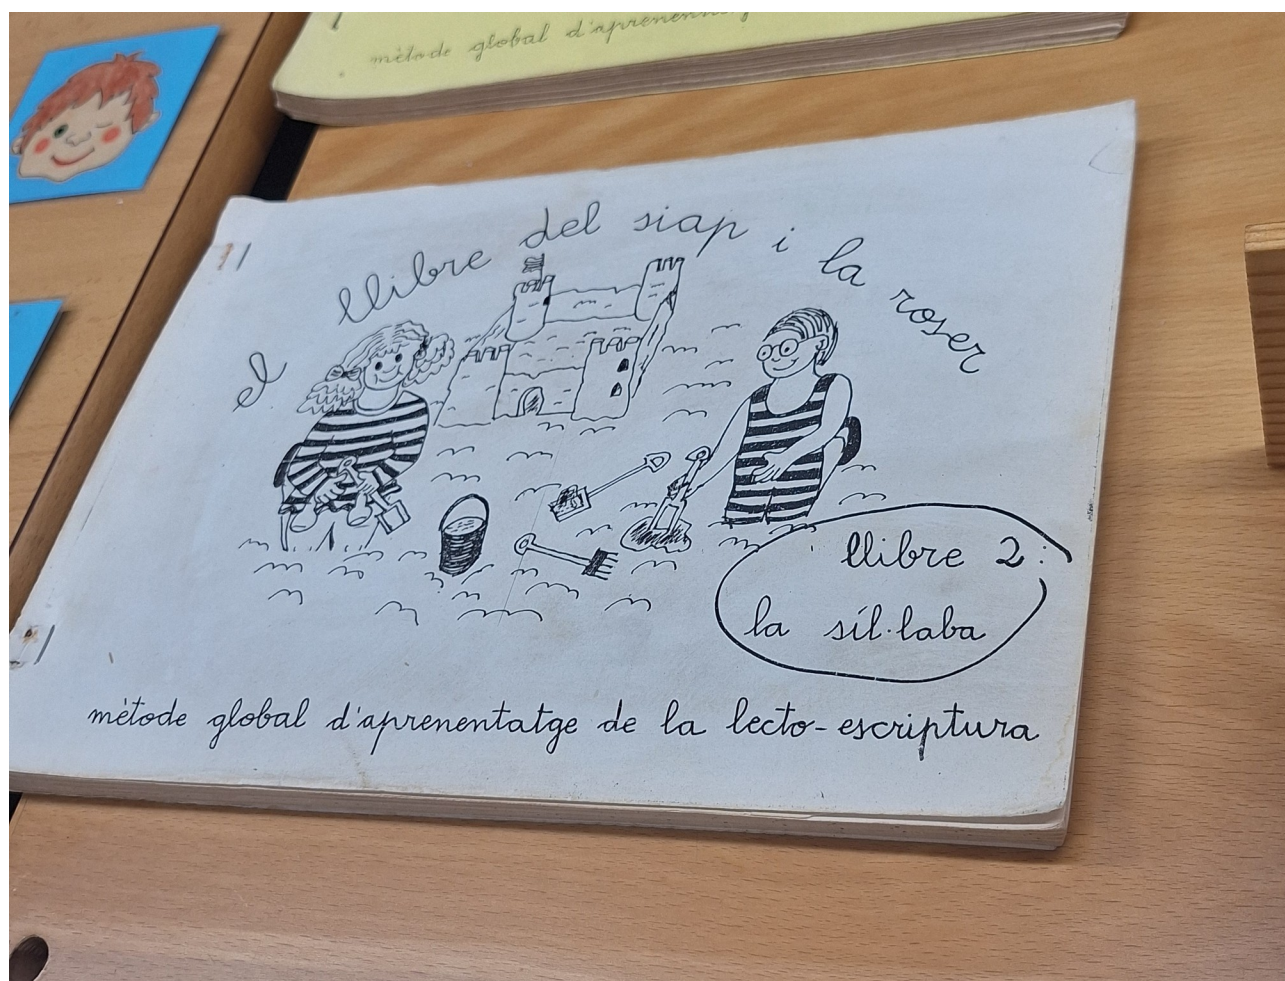 mètode global d'aprenentatge
el llibre del siap i la roser
llibre 2:
la síl·laba
mètode global d'aprenentatge de la lecto-escriptura